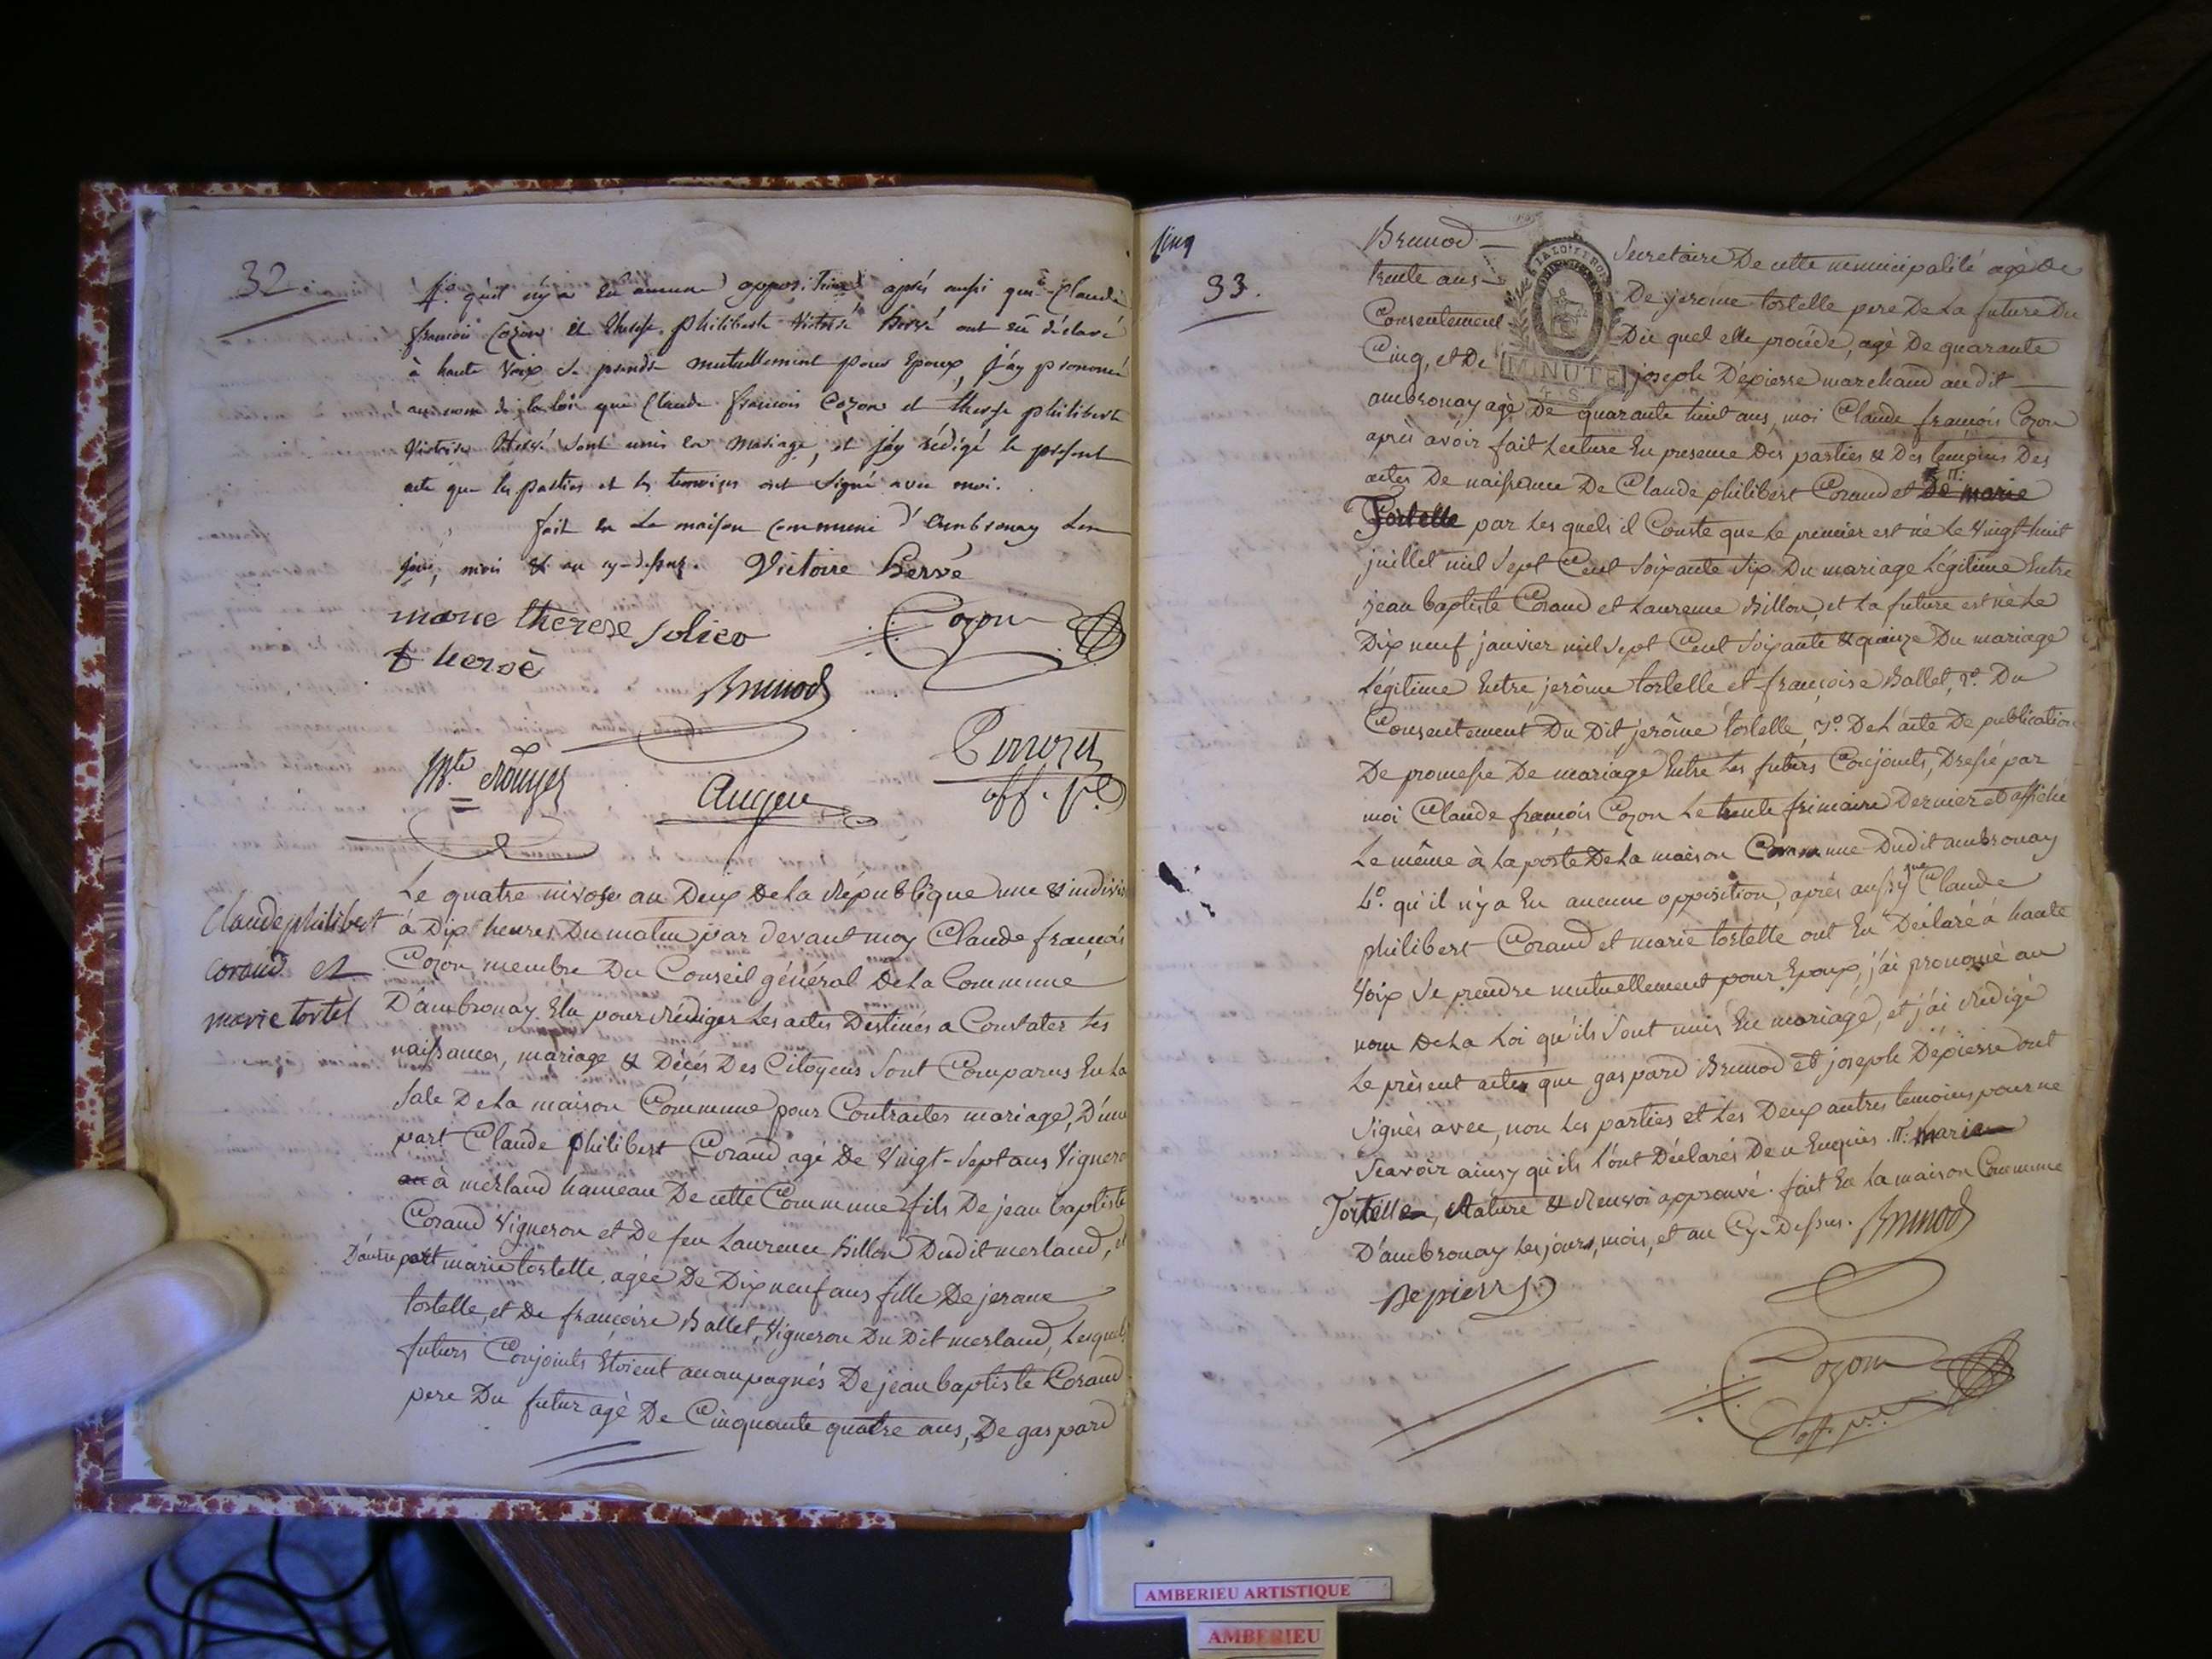 32.
4.° qu'il n'y a eu aucune opposition après aussi que Claude
françois Cozon et therese philiberte Victoire hervé ont eu déclaré
à haute voix se prendre mutuellement pour Epoux, j'ay prononcé
au nom de la loi que Claude françois Cozon et therese philiberte
Victoire Hervé sont unis en mariage, et j'ay rédigé le présent
acte que les parties et les temoins ont signé avec moi.
fait en la maison commune d'ambronay les
jour, mois & an cy-dessus. Victoire hervé
marie therese Cozon
hervé
Brunod
Perrozet
off. p.
Auger
Le quatre nivose an Deux De La République une & indivisi
Claude philibert
corand et
marie tortel
à Dix heures Du matin par devant moy Claude françois
Cozon, membre Du Conseil général De La Commune
D'ambronay Elu pour Rédiger Les actes Destinés a Constater Les
naissances, mariage & Décés Des Citoyens sont Comparus En La
Sale De La maison Commune pour Contracter mariage, D'une
part Claude philibert Corand agé De Vingt-Sept ans Vigneron
à merland hameau De cette Commune fils De jean baptiste
Corand Vigneron et De feu Laurence Billon Dudit merland, et
D'autre part marie tortelle, agée De Dix neuf ans fille De jerome
tortelle, et De françoise Ballet, Vigneron Du Dit merland, Lesquels
futurs Conjoints Etoient accompagnés De jean baptiste Corand
pere Du futur agé De Cinquante quatre ans, De gaspard
Cinq
33.
Brunod Secretaire De cette municipalité agé de
trente ans De jerome tortelle pere De La future Du
Consentement Du quel elle procéde, agé De quarante
Cinq, et De joseph Dépierre marchand au dit
MINUTE
ambronay agé De quarante huit ans, moi Claude françois Cozon
après avoir fait Lecture En presence Des parties & Des temoins Des
actes De naissance De Claude philibert Corand et De marie
Tortelle par Les quels il Conste que Le premier est né Le Vingt-huit
juillet mil Sept Cent Soixante Six Du mariage Légitime Entre
jean baptiste Corand et Laurence Billon, et La future est née Le
Dix neuf janvier mil Sept Cent Soixante & quinze Du mariage
Légitime Entre jerôme tortelle et françoise Ballet, 2.° Du
Consentement Du Dit jerôme tortelle, 3.° De L'acte De publication
De promesse De mariage Entre Les futurs Conjoints, Dressé par
moi Claude françois Cozon Le trente frimaire Dernier et affiché
Le même à La porte De La maison Commune Dudit ambronay
4.° qu'il n'y a Eu aucune opposition, après aussy que Claude
philibert Corand et marie tortelle ont Eu Déclaré à haute
Voix Se prendre mutuellement pour Epoux, j'ai prononcé au
nom De La Loi qu'ils Sont unis En mariage, et j'ai Rédigé
Le présent acte que gaspard Brunod et joseph Dépierre ont
Signés avec, non Les parties et Les Deux autres temoins pour ne
Scavoir ainsy qu'ils L'ont Déclarés De ce Enquis. marie
Tortelle, Rature & Renvoi approuvé. fait En La maison Commune
D'ambronay Les jours, mois, et an Cy-Dessus. Brunod
Depierre
Cozon
off. p.
AMBERIEU ARTISTIQUE
AMBERIEU